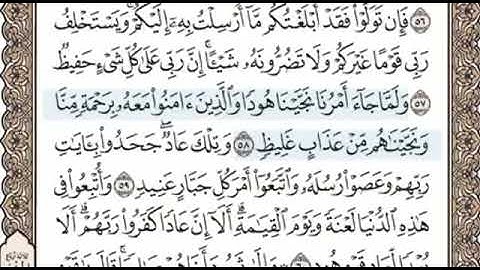 ٥٦ فَإِن تَوَلَّوْا۟ فَقَدْ أَبْلَغْتُكُم مَّآ أُرْسِلْتُ بِهِۦٓ إِلَيْكُمْ ۚ وَيَسْتَخْلِفُ
رَبِّى قَوْمًا غَيْرَكُمْ وَلَا تَضُرُّونَهُۥ شَيْـًٔا ۚ إِنَّ رَبِّى عَلَىٰ كُلِّ شَىْءٍ حَفِيظٌ
٥٧ وَلَمَّا جَآءَ أَمْرُنَا نَجَّيْنَا هُودًا وَٱلَّذِينَ ءَامَنُوا۟ مَعَهُۥ بِرَحْمَةٍ مِّنَّا
وَنَجَّيْنَٰهُم مِّنْ عَذَابٍ غَلِيظٍ ٥٨ وَتِلْكَ عَادٌ ۖ جَحَدُوا۟ بِـَٔايَٰتِ
رَبِّهِمْ وَعَصَوْا۟ رُسُلَهُۥ وَٱتَّبَعُوٓا۟ أَمْرَ كُلِّ جَبَّارٍ عَنِيدٍ ٥٩ وَأُتْبِعُوا۟ فِى
هَٰذِهِ ٱلدُّنْيَا لَعْنَةً وَيَوْمَ ٱلْقِيَٰمَةِ ۗ أَلَآ إِنَّ عَادًا كَفَرُوا۟ رَبَّهُمْ ۗ أَلَا